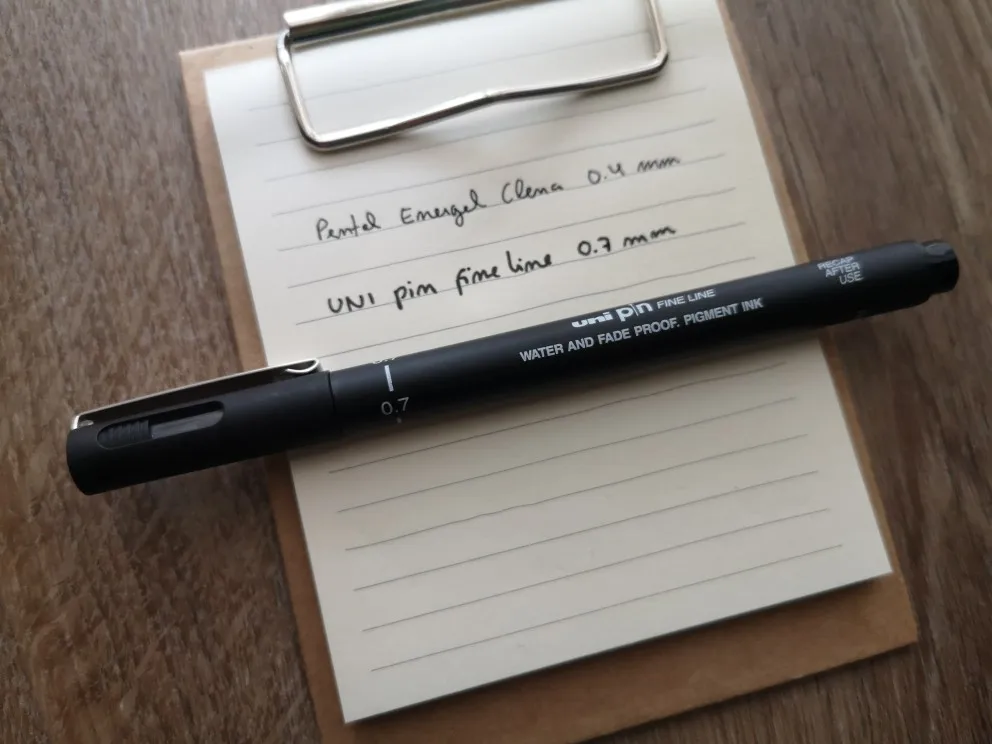 Pentel Energel Clena 0.4 mm
UNI pin fine line 0.7 mm
uni pin FINE LINE
WATER AND FADE PROOF. PIGMENT INK
RECAP
AFTER
USE
0.7